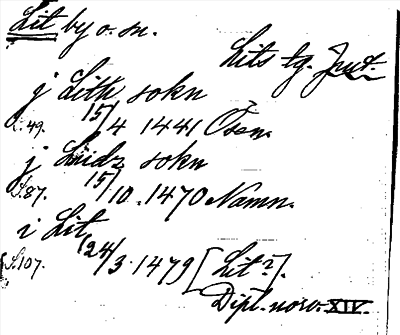 Lit by o. sn.
Lits tg. Jmt.
j Lith sokn
S. 49. 15/4 1441 Ösen.
j Liidz sokn
S. 87. 15/10. 1470 Namn.
i Lit
S. 107. (24/3. 1479 [Lit?].
Dipl. norv. XIV.